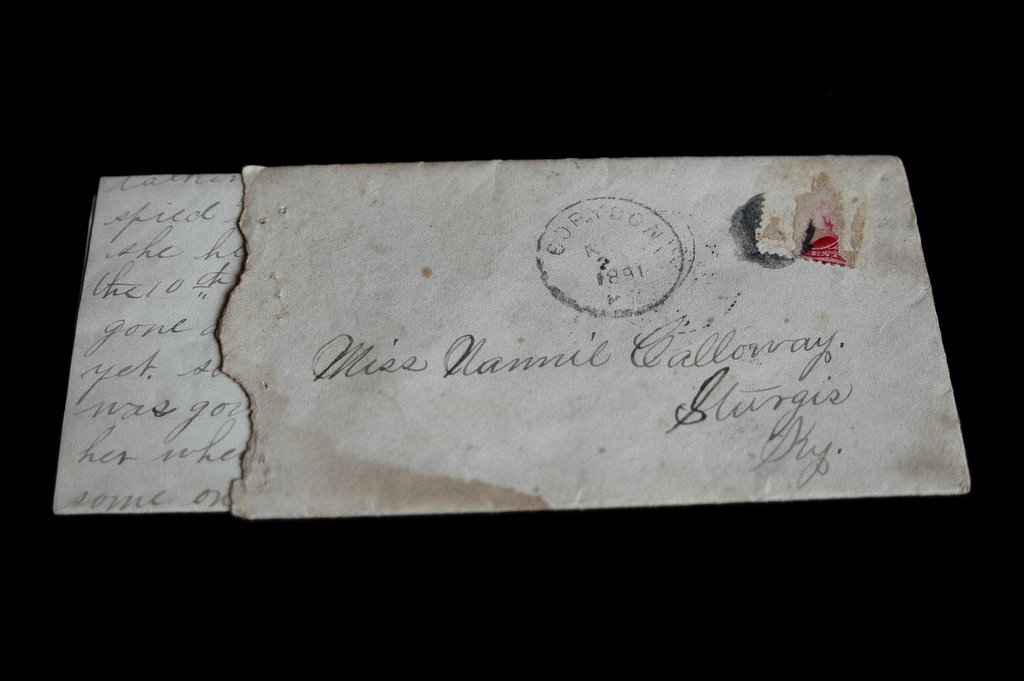 spied
she he
the 10th
gone a
yet. s
was gon
her whe
some on
CORYDON
1891
Miss Nannie Calloway.
Sturgis
Ky.